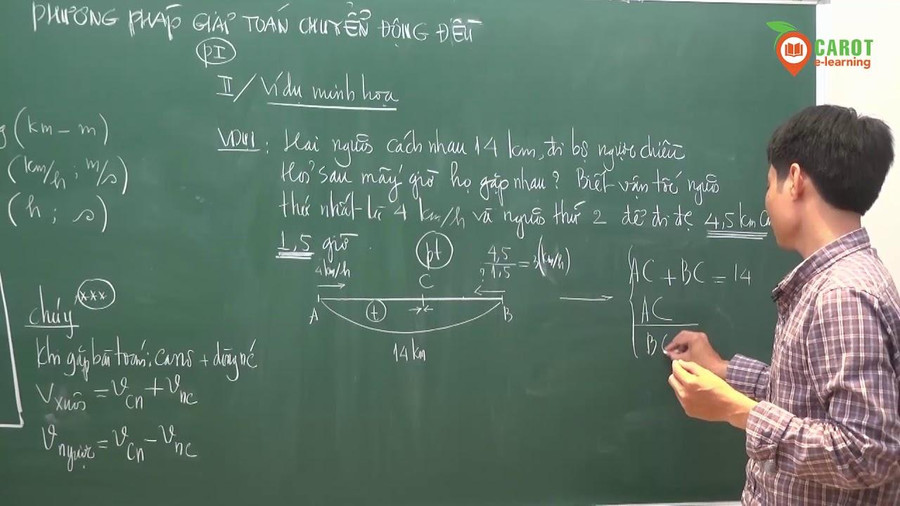 PHƯƠNG PHÁP GIẢI TOÁN CHUYỂN ĐỘNG ĐỀU
pI
CAROT
e-learning
II/ Ví dụ minh họa
(km - m)
(km/h, m/s)
(h; s)
VD1: Hai người cách nhau 14 km, đi bộ ngược chiều
Hỏi sau mấy giờ họ gặp nhau? Biết vận tốc người
thứ nhất là 4 km/h và người thứ 2 để đi đc 4,5 km
1,5 giờ.
4km/h
pt
4,5/1,5 = 3 (km/h)
C
A
t
B
14 km
AC + BC = 14
AC
BC
chú ý ***
Khi gặp bài toán: cano + dòng nc
Vxuôi = Vcn + Vnc
Vngược = Vcn - Vnc